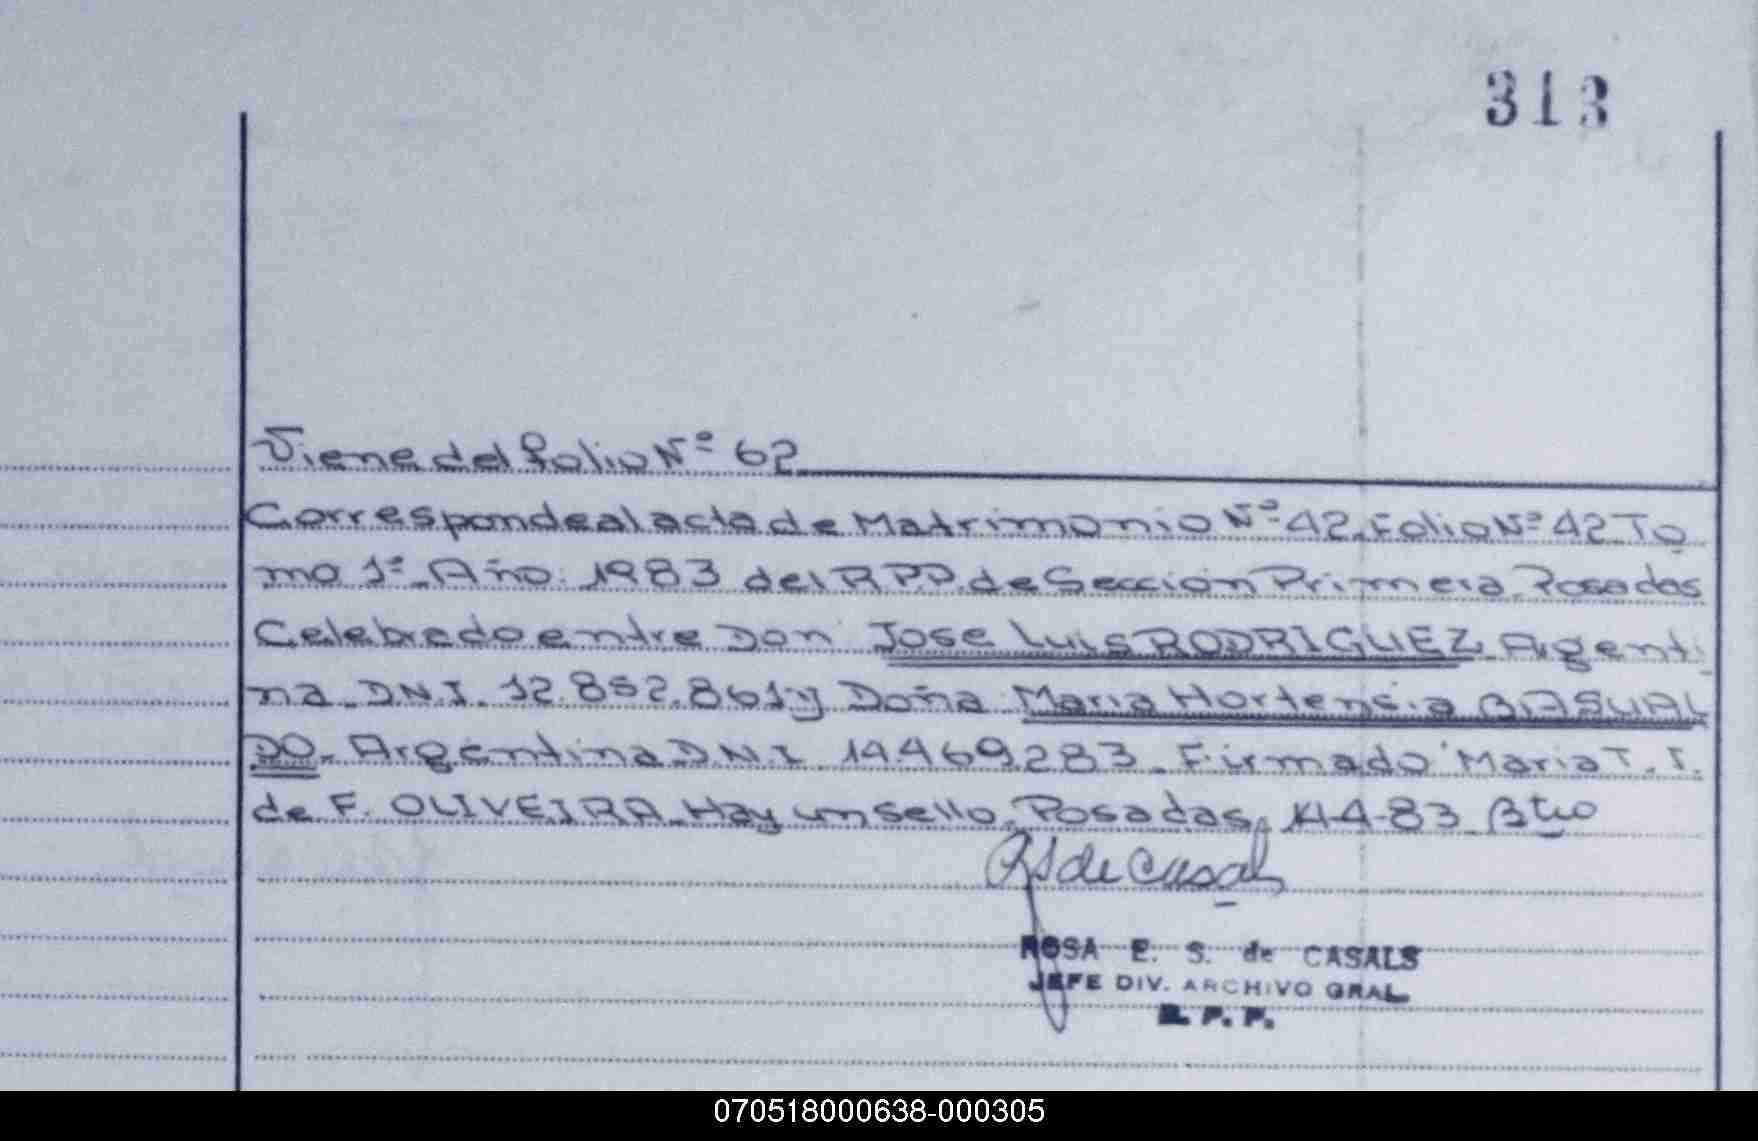 313
Viene del folio Nº 62
Corresponde al acta de Matrimonio Nº 42. Folio Nº 42 To
mo 1º. Año: 1983 del R.P.P. de Sección Primera. Posadas
Celebrado entre Don Jose Luis RODRIGUEZ. Argenti
na. D.N.I. 12.852.861 y Doña Maria Hortensia BASUAL
DO. Argentina D.N.I. 14.469.283. Firmado Maria T. I.
de F. OLIVEIRA. Hay un sello. Posadas, 14-4-83
RS de Casals
ROSA E. S. de CASALS
JEFE DIV. ARCHIVO GRAL.
R. P. P.
070518000638-000305